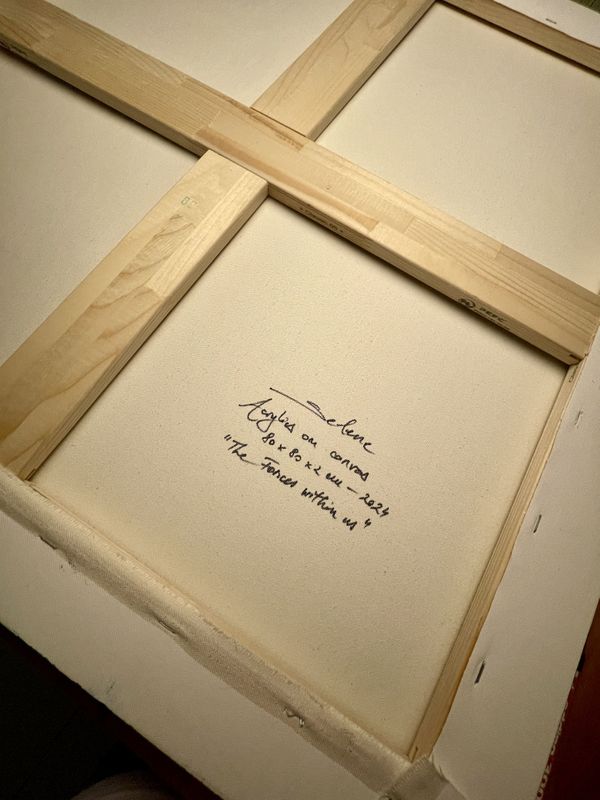 PEFC
Selene
Acrylics on canvas
80 x 80 x 2 cm - 2024
"The Forces within us"